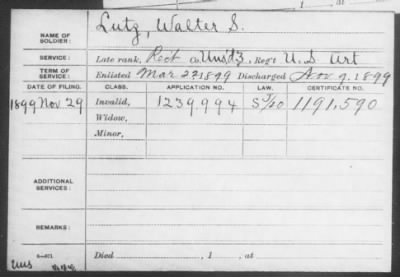 NAME OF SOLDIER: Lutz, Walter S.
SERVICE: Late rank, Rect Co. Uns'd 3, Reg't U.S Art
TERM OF SERVICE: Enlisted Mar 27 1899 Discharged Nov 9, 1899
DATE OF FILING. CLASS. APPLICATION NO. LAW. CERTIFICATE NO.
1899 Nov 29 Invalid, 1239,994 1191,590
Widow,
Minor,
ADDITIONAL SERVICES:
REMARKS:
Died , 1 , at